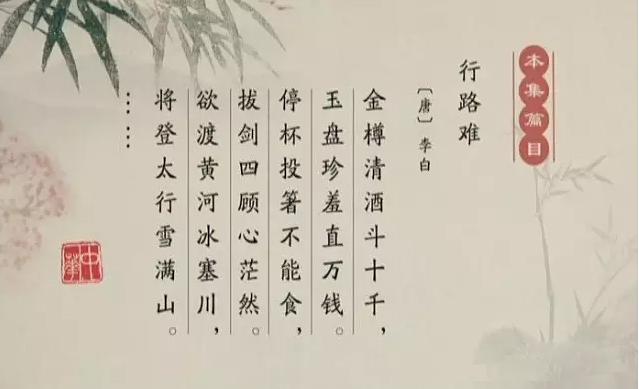 本集篇目
行路难
〔唐〕李白
金樽清酒斗十千，
玉盘珍羞直万钱。
停杯投箸不能食，
拔剑四顾心茫然。
欲渡黄河冰塞川，
将登太行雪满山。
……
中华